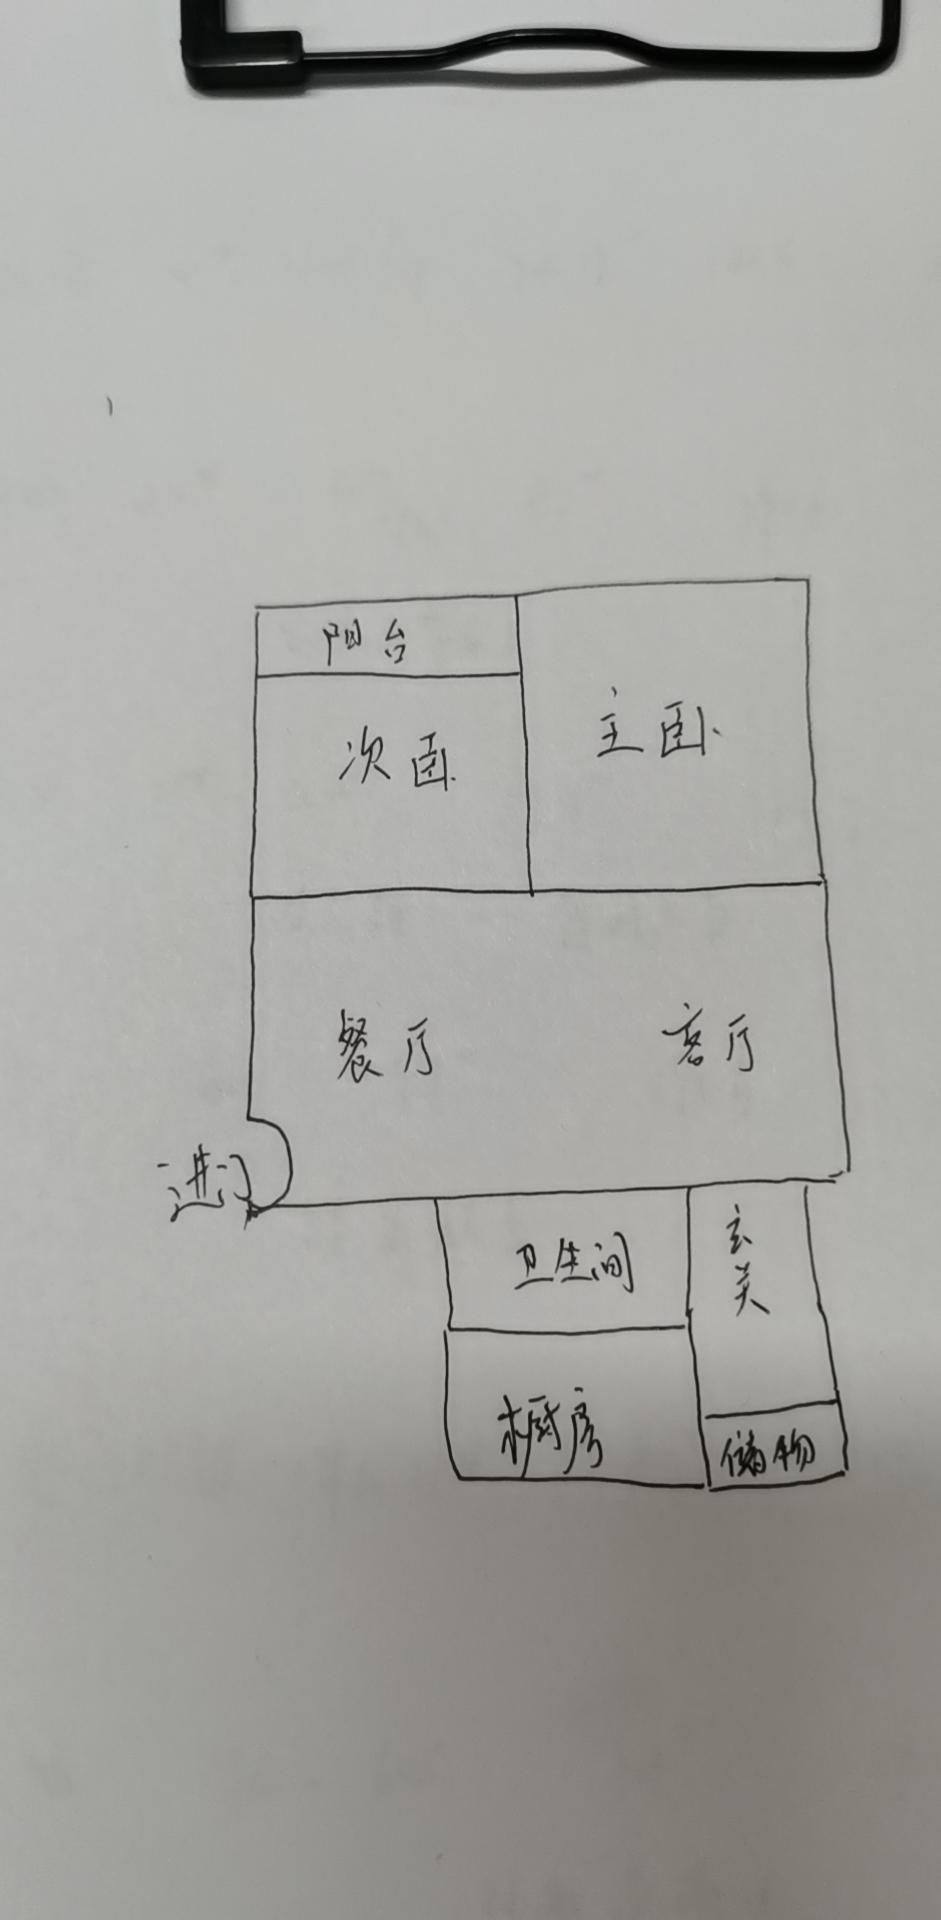 阳台
次卧
主卧
餐厅
客厅
进门
卫生间
玄关
橱房
储物